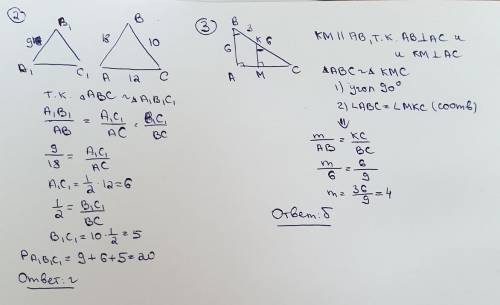 2
B₁
9
A₁
C₁
B
18
10
A
12
C
Т.К. △ABC ∼ △A₁B₁C₁
A₁B₁/AB = A₁C₁/AC = B₁C₁/BC
9/18 = A₁C₁/AC
A₁C₁ = 1/2 · 12 = 6
1/2 = B₁C₁/BC
B₁C₁ = 10 · 1/2 = 5
P A₁B₁C₁ = 9 + 6 + 5 = 20
Ответ: г
3
B
3
K
6
6
A
M
C
KM || AB, т.к. AB ⊥ AC и
и KM ⊥ AC
△ABC ∼ △KMC
1) угол 90°
2) ∠ABC = ∠MKC (соотв)
⇓
m/AB = KC/BC
m/6 = 6/9
m = 36/9 = 4
Ответ: б